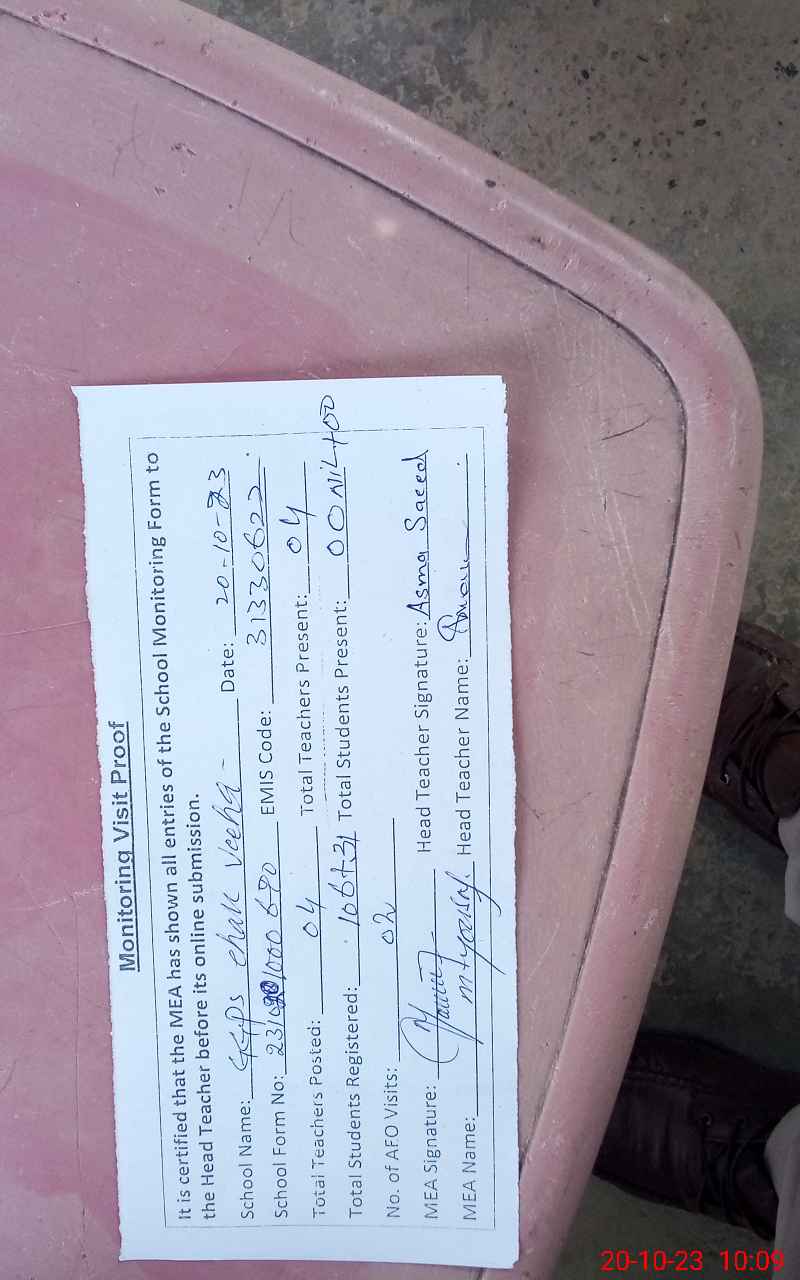 Monitoring Visit Proof
It is certified that the MEA has shown all entries of the School Monitoring Form to
the Head Teacher before its online submission.
School Name: GGPS Chak Veeha - Date: 20-10-23
School Form No: 1000 680 EMIS Code: 31330622
Total Teachers Posted: 04 Total Teachers Present: 04
Total Students Registered: 106+31 Total Students Present: 00 Nil+00
No. of AEO Visits: 02
MEA Signature: Head Teacher Signature: Asma Saeed
MEA Name: Head Teacher Name:
20-10-23 10:09